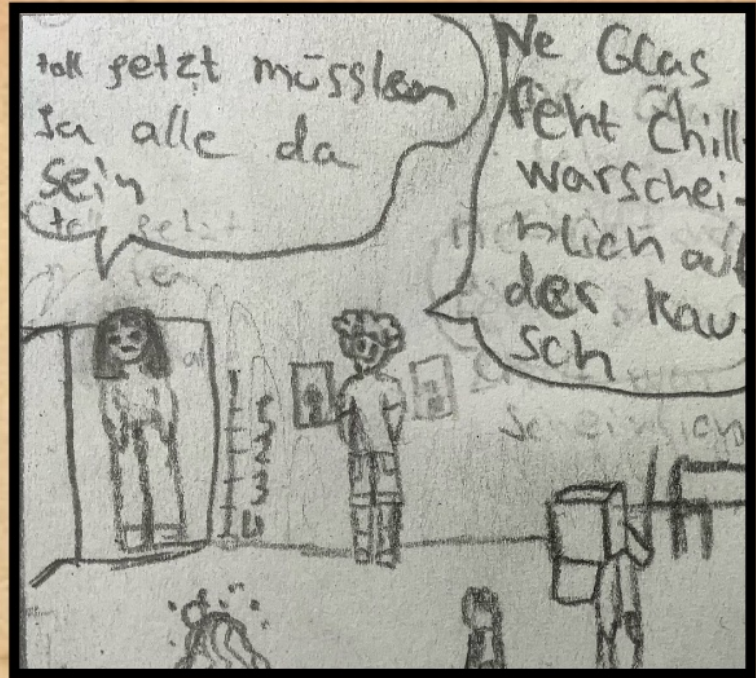 toll jetzt müssten
ja alle da
sein
Ne Glas
feht Chill
warschei-
nlich auf
der kau
sch
1
2
3